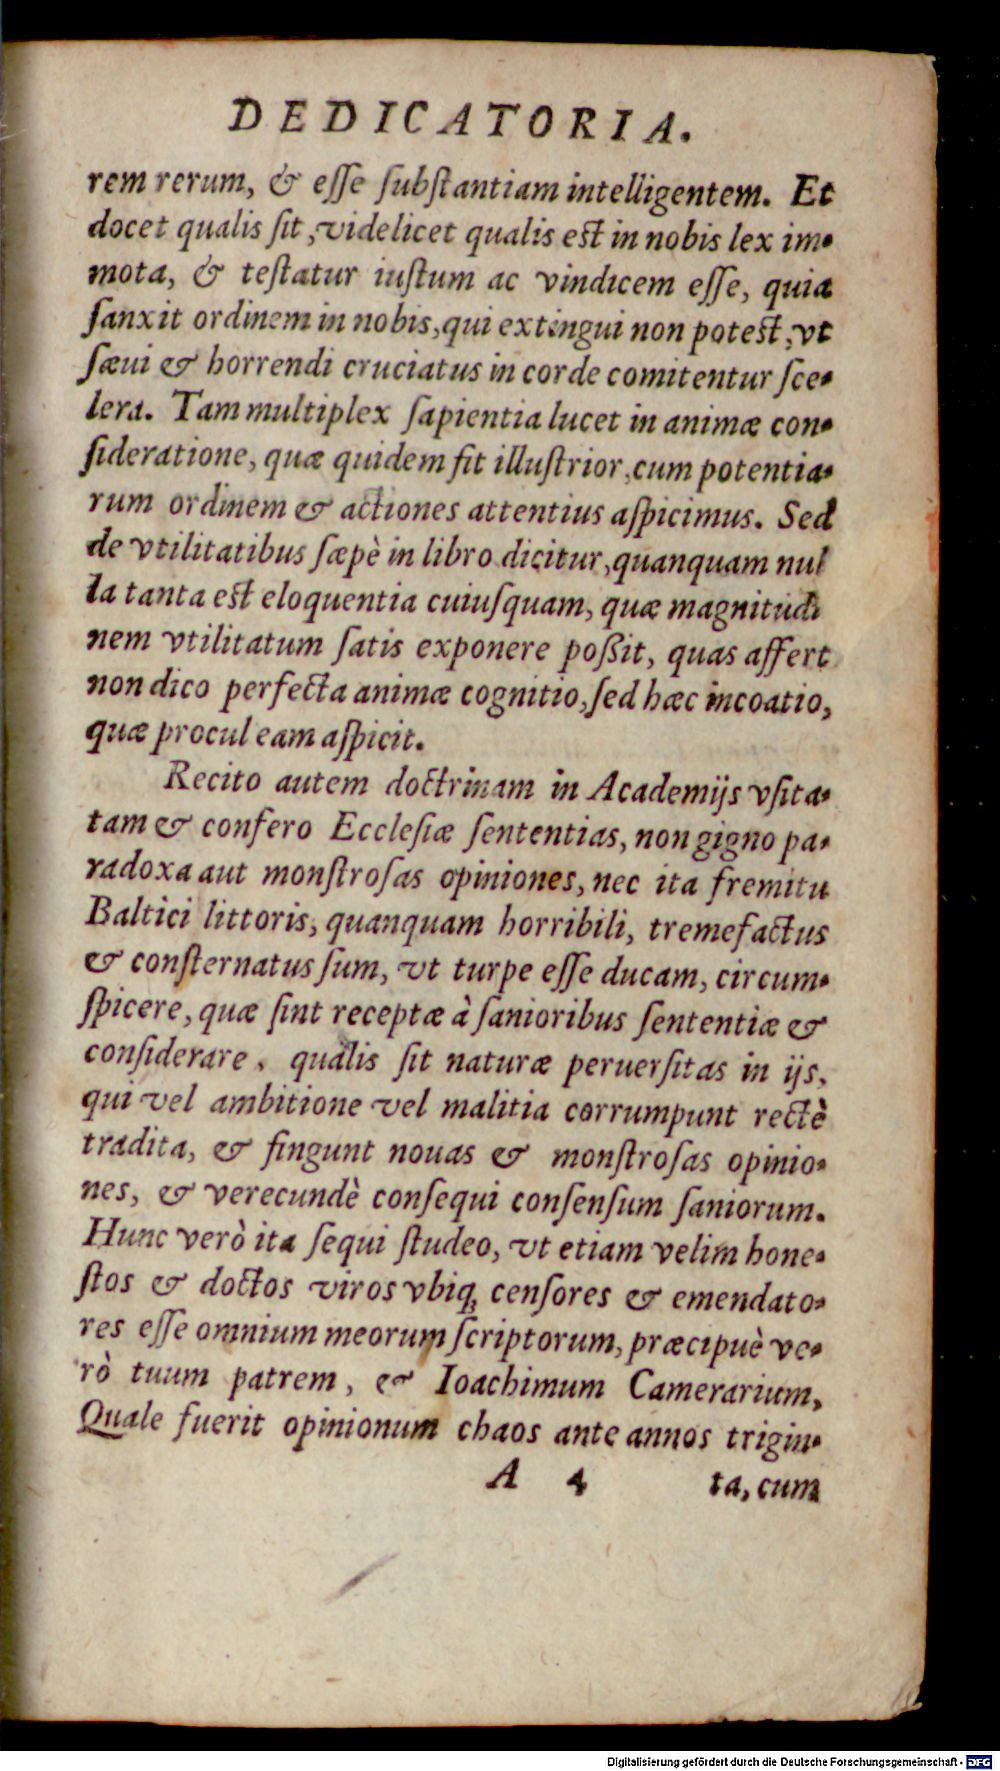 DEDICATORIA.
rem rerum, & eſſe ſubſtantiam intelligentem. Et
docet qualis ſit, videlicet qualis est in nobis lex im-
mota, & teſtatur iuſtum ac vindicem eſſe, quia
ſanxit ordinem in nobis, qui extingui non potest, vt
ſæui & horrendi cruciatus in corde comitentur ſce-
lera. Tam multiplex ſapientia lucet in animæ con-
ſideratione, quæ quidem fit illuſtrior, cum potentia-
rum ordinem & actiones attentius aſpicimus. Sed
de vtilitatibus ſæpè in libro dicitur, quanquam nul
la tanta est eloquentia cuiuſquam, quæ magnitudi
nem vtilitatum ſatis exponere poßit, quas affert
non dico perfecta animæ cognitio, ſed hæc incoatio,
quæ procul eam aſpicit.
Recito autem doctrinam in Academijs vſita-
tam & confero Eccleſiæ ſententias, non gigno pa-
radoxa aut monſtroſas opiniones, nec ita fremitu
Baltici littoris, quanquam horribili, tremefactus
& conſternatus ſum, vt turpe eſſe ducam, circum-
ſpicere, quæ ſint receptæ à ſanioribus ſententiæ &
conſiderare, qualis ſit naturæ peruerſitas in ijs,
qui vel ambitione vel malitia corrumpunt rectè
tradita, & fingunt nouas & monſtroſas opinio-
nes, & verecundè conſequi conſenſum ſaniorum.
Hunc verò ita ſequi ſtudeo, vt etiam velim hone-
ſtos & doctos viros vbiq; cenſores & emendato-
res eſſe omnium meorum ſcriptorum, præcipuè ve-
rò tuum patrem, & Ioachimum Camerarium,
Quale fuerit opinionum chaos ante annos trigin-
A 4 ta, cum
Digitalisierung gefördert durch die Deutsche Forschungsgemeinschaft - DFG